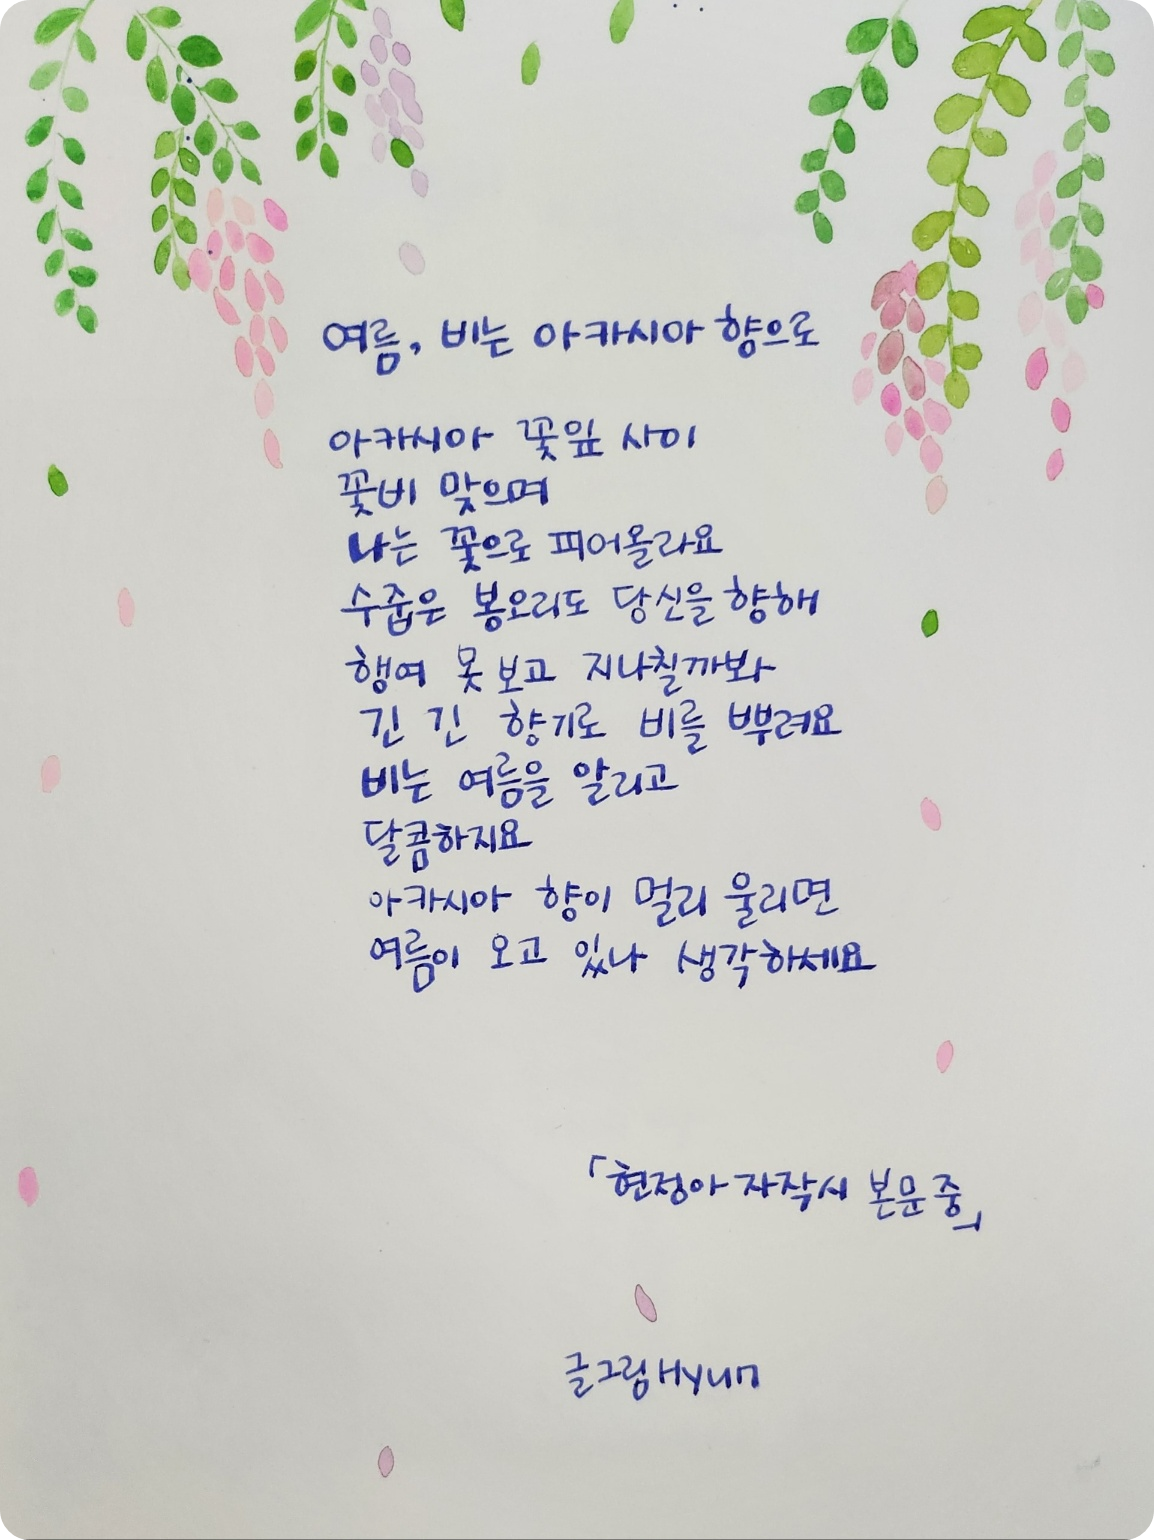 여름, 비는 아카시아 향으로
아카시아 꽃잎 사이
꽃비 맞으며
나는 꽃으로 피어올라요
수줍은 봉오리도 당신을 향해
행여 못 보고 지나칠까봐
긴 긴 향기로 비를 뿌려요
비는 여름을 알리고
달콤하지요
아카시아 향이 멀리 울리면
여름이 오고 있나 생각하세요
「현정아 자작시 본문 중」
글그림 Hyun